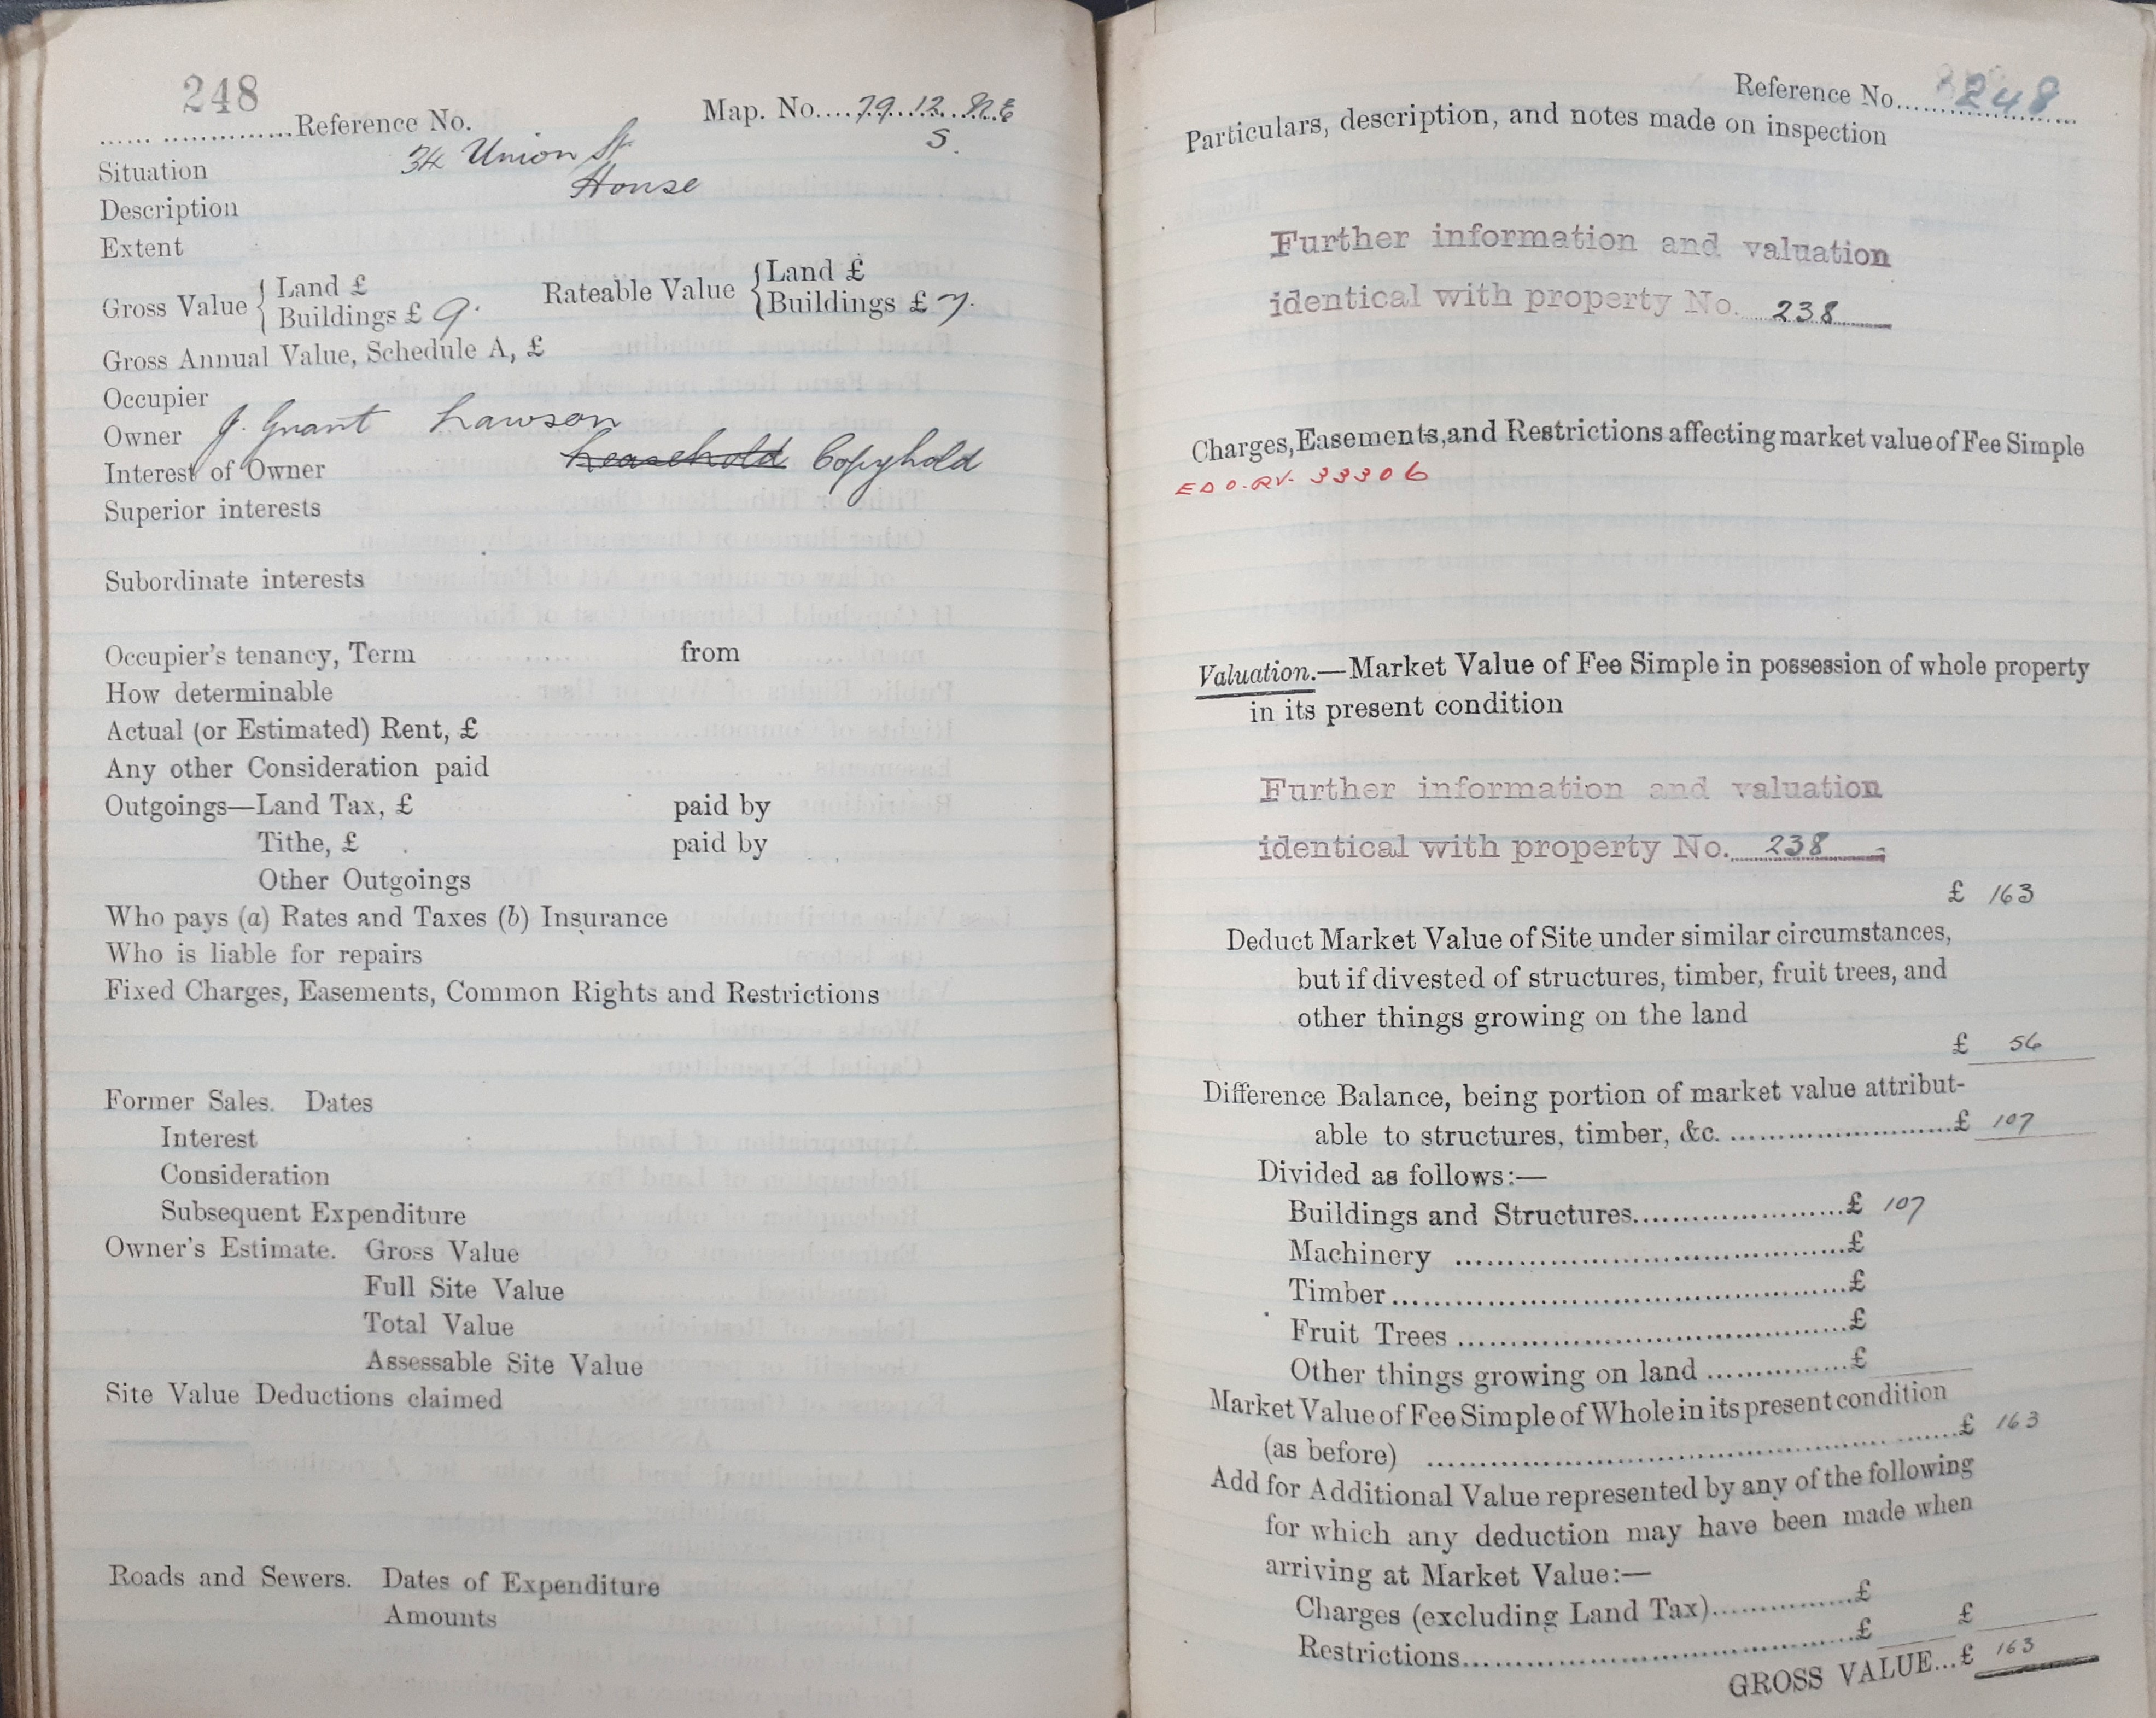 248
Reference No. Map. No. 79.12.N.E
S.
Situation 34 Union St
Description House
Extent
Gross Value { Land £
Buildings £ 9. Rateable Value { Land £
Buildings £ 7.
Gross Annual Value, Schedule A, £
Occupier
Owner J. Grant Lawson
Interest of Owner Leasehold Copyhold
Superior interests
Subordinate interests
Occupier's tenancy, Term from
How determinable
Actual (or Estimated) Rent, £
Any other Consideration paid
Outgoings—Land Tax, £ paid by
Tithe, £ paid by
Other Outgoings
Who pays (a) Rates and Taxes (b) Insurance
Who is liable for repairs
Fixed Charges, Easements, Common Rights and Restrictions
Former Sales. Dates
Interest
Consideration
Subsequent Expenditure
Owner's Estimate. Gross Value
Full Site Value
Total Value
Assessable Site Value
Site Value Deductions claimed
Roads and Sewers. Dates of Expenditure
Amounts
Reference No. 248
Particulars, description, and notes made on inspection
Further information and valuation
identical with property No. 238
Charges, Easements, and Restrictions affecting market value of Fee Simple
EDO. RV. 33306
Valuation.—Market Value of Fee Simple in possession of whole property
in its present condition
Further information and valuation
identical with property No. 238
£ 163
Deduct Market Value of Site under similar circumstances,
but if divested of structures, timber, fruit trees, and
other things growing on the land
£ 56
Difference Balance, being portion of market value attribut-
able to structures, timber, &c. £ 107
Divided as follows:—
Buildings and Structures £ 107
Machinery £
Timber £
Fruit Trees £
Other things growing on land £
Market Value of Fee Simple of Whole in its present condition
(as before) £ 163
Add for Additional Value represented by any of the following
for which any deduction may have been made when
arriving at Market Value:—
Charges (excluding Land Tax) £
Restrictions £ £
GROSS VALUE... £ 163